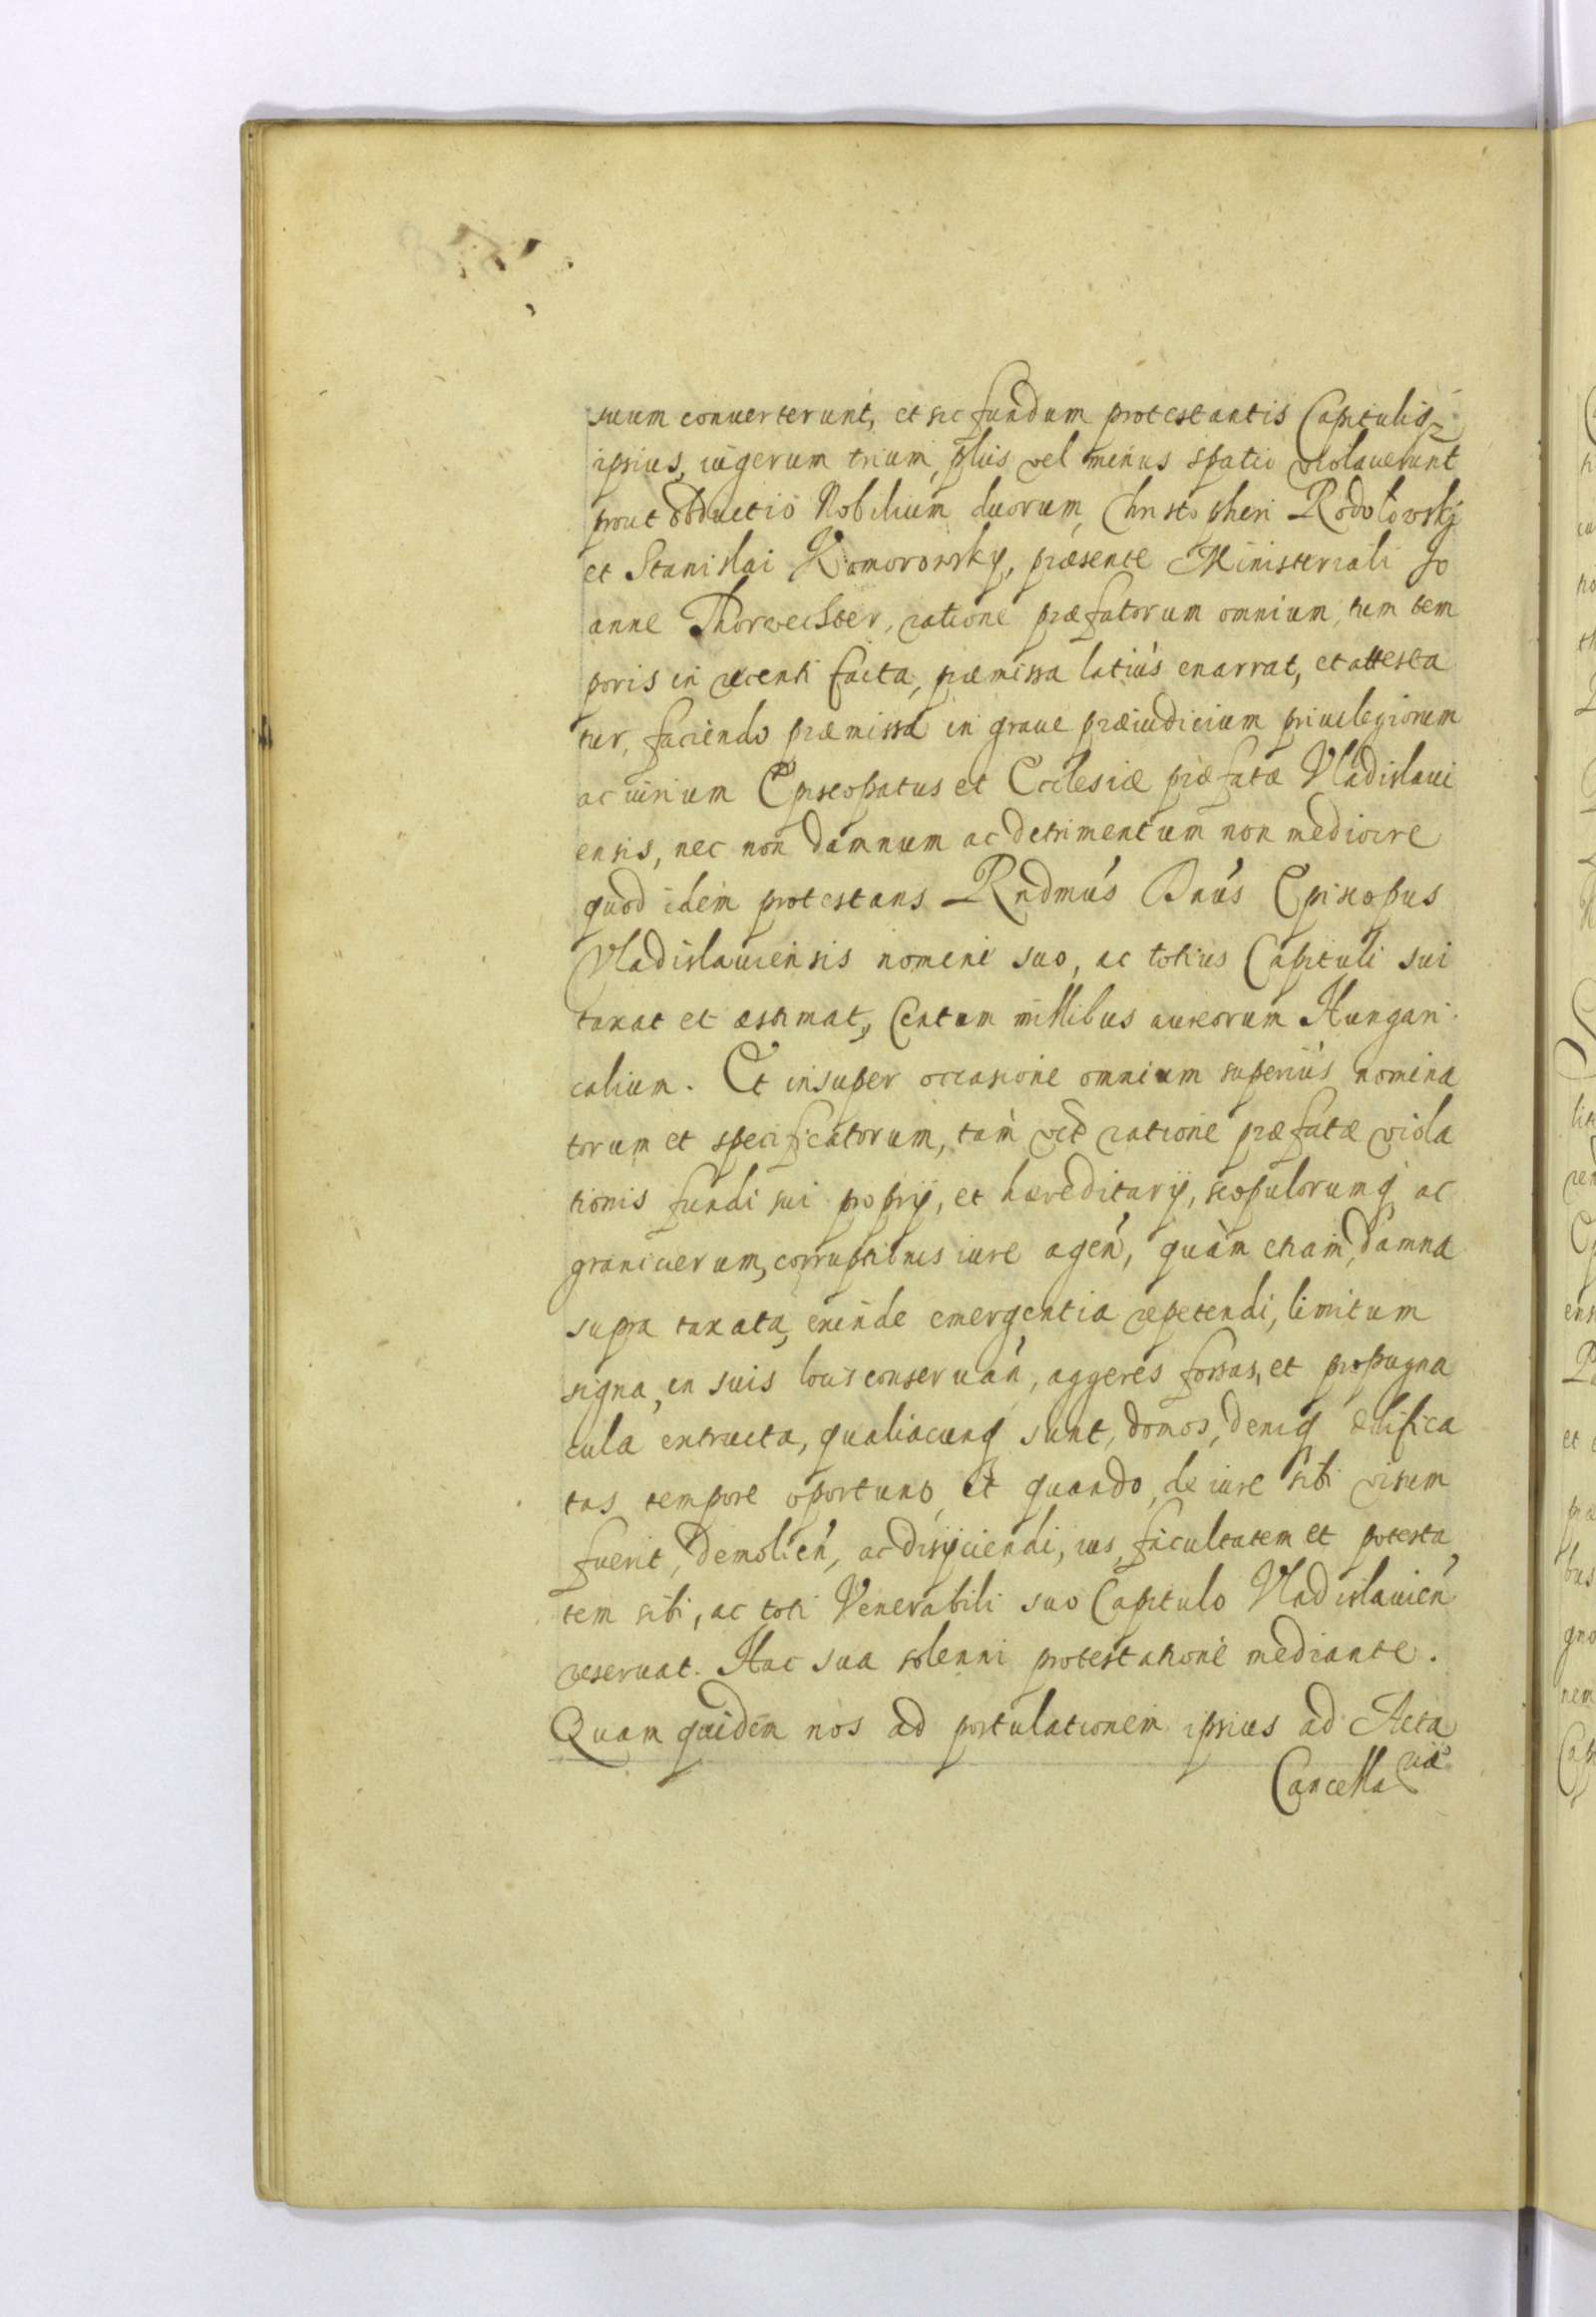 suum conuerterunt, et sic fundum protestantis Capituliq;
ipsius, iugerum trium, plus vel minus spatio violauerunt
prout obductio Nobilium duorum, Christopheri Rodołowskj
et Stanislai Komorowsky, præsente Ministeriali Jo
anne Thorwechter, ratione præfatorum omnium, tum tem
poris in recenti facta, præmissa latiùs enarrat, et attesta
tur, faciendo præmissa in graue præiudicium priuilegiorum
ac iurium Episcopatus et Ecclesiæ præfatæ Vladislaui
ensis, nec non damnum ac detrimentum non mediocre
quod idem protestans Rndmus Dnus Episcopus
Vladislauiensis nomine suo, ac totius Capituli sui
taxat et æstimat, Centum millibus aureorum Hungari
calium. Et insuper occasione omnium superiùs nomina
torum et specificatorum, tàm vt ratione præfatæ viola
tionis fundi sui proprij, et hæreditarij, scopulorumq ac
granicierum, corruptionis iure agen, quàm etiam, damna
supra taxata, exinde emergentia repetendi, limitum
signa, in suis locis conseruan, aggeres fossas, et propugna
cula extructa, qualiacunq sunt, domos, deniq ædifica
tas tempore oportuno, et quando, de iure sibi visum
fuerit, demolien, ac disijciendi, ius, facultatem et potesta
tem sibi, ac toti Venerabili suo Capitulo Vladislauien
reseruat. Hac sua solenni protestatione mediante.
Quam quidem nos ad postulationem ipsius ad Acta
Cancellariæ